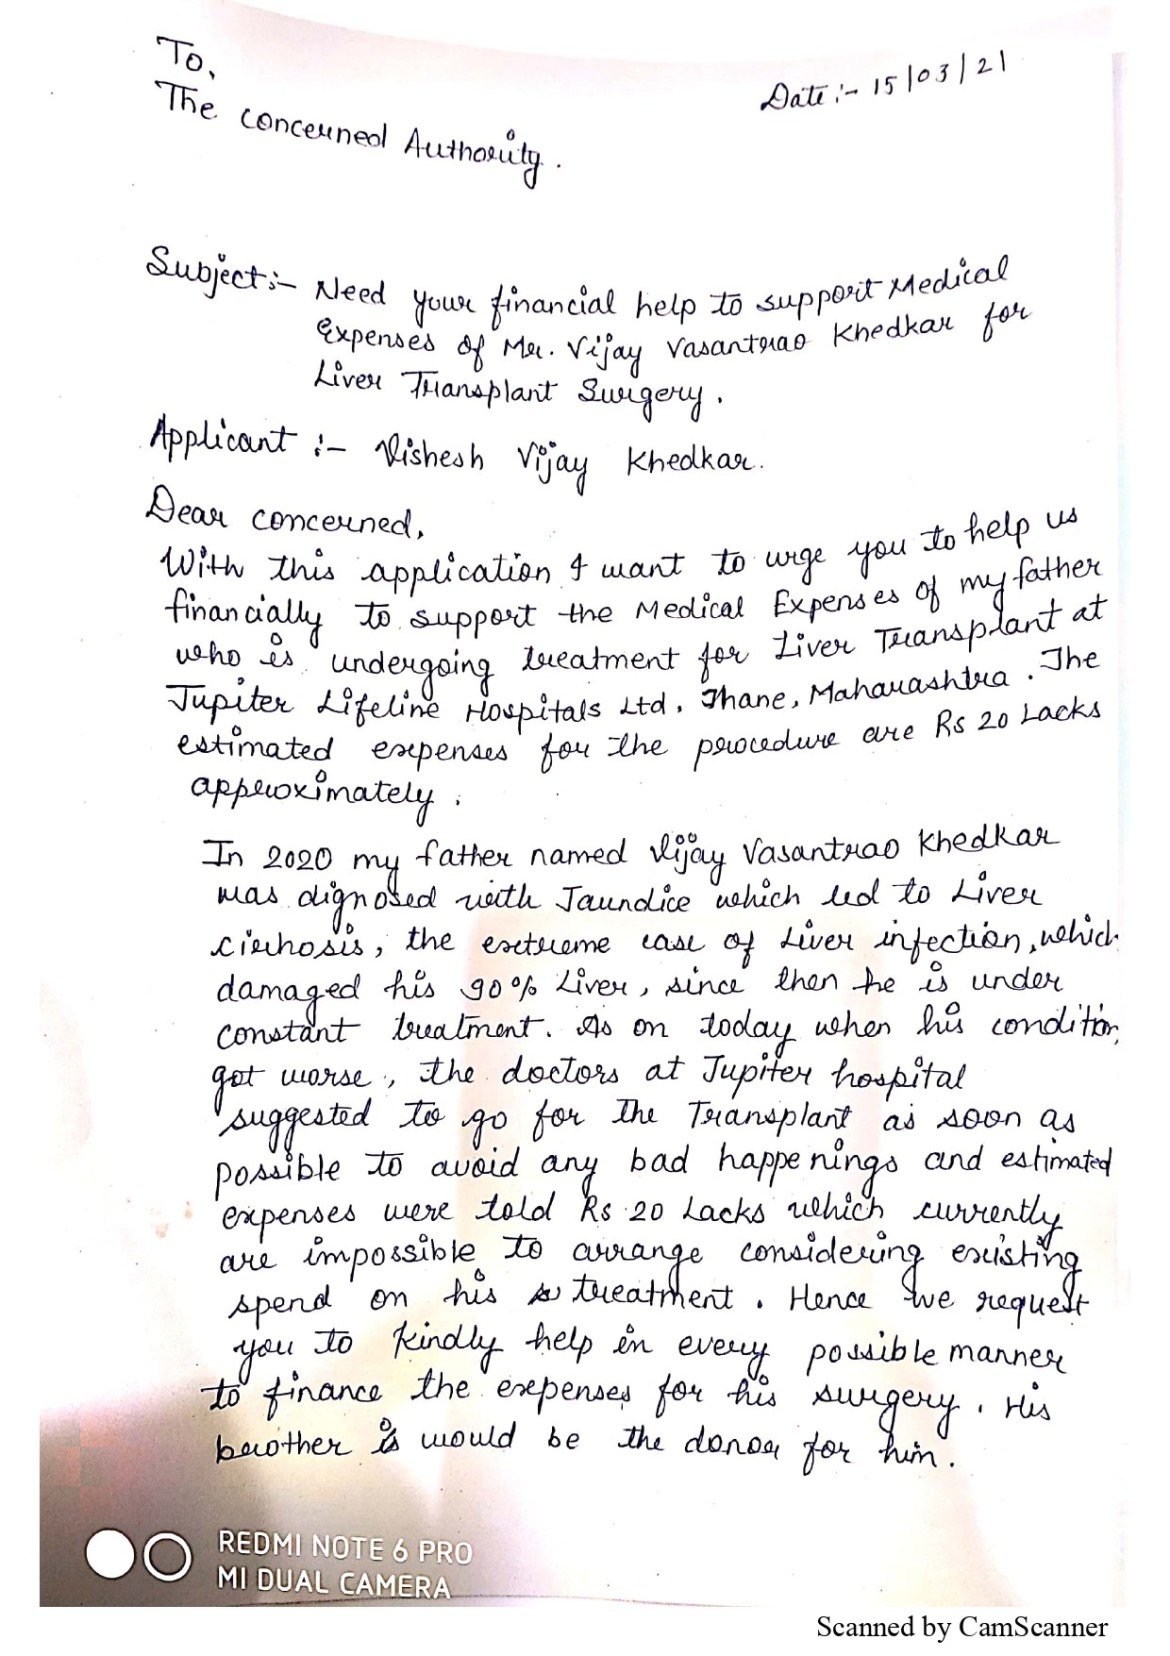 To,
Date :- 15/03/21
The concerned Authority.
Subject:- Need your financial help to support Medical
Expenses of Mr. Vijay Vasantrao Khedkar for
Liver Transplant Surgery.
Applicant :- Vishesh Vijay Khedkar.
Dear concerned,
With this application I want to urge you to help us
financially to support the Medical Expenses of my father
who is undergoing treatment for Liver Transplant at
Jupiter Lifeline Hospitals Ltd, Thane, Maharashtra. The
estimated expenses for the procedure are Rs 20 Lacks
approximately.
In 2020 my father named Vijay Vasantrao Khedkar
was dignosed with Jaundice which led to Liver
cirrhosis, the extreme case of Liver infection, which
damaged his 90% Liver, since then he is under
constant treatment. As on today when his condition
got worse, the doctors at Jupiter hospital
suggested to go for the Transplant as soon as
possible to avoid any bad happenings and estimated
expenses were told Rs 20 Lacks which currently
are impossible to arrange considering existing
spend on his treatment. Hence we request
you to kindly help in every possible manner
to finance the expenses for his surgery. His
brother is would be the donor for him.
REDMI NOTE 6 PRO
MI DUAL CAMERA
Scanned by CamScanner